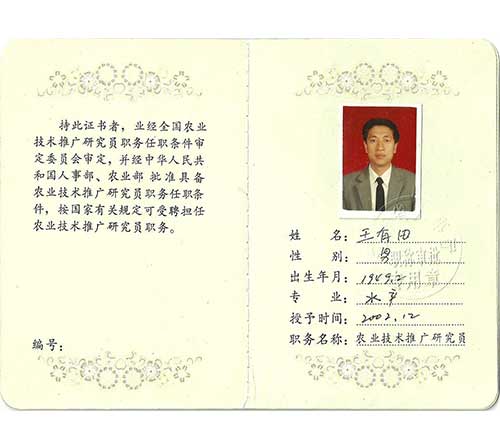 持此证书者，业经全国农业
技术推广研究员职务任职条件审
定委员会审定，并经中华人民共
和国人事部、农业部 批准具备
农业技术推广研究员职务任职条
件，按国家有关规定可受聘担任
农业技术推广研究员职务。
编号：
姓 名：王有田
性 别：男
出生年月：1949.2
专 业：水产
授予时间：2002.12
职务名称：农业技术推广研究员
职务审批
专用章